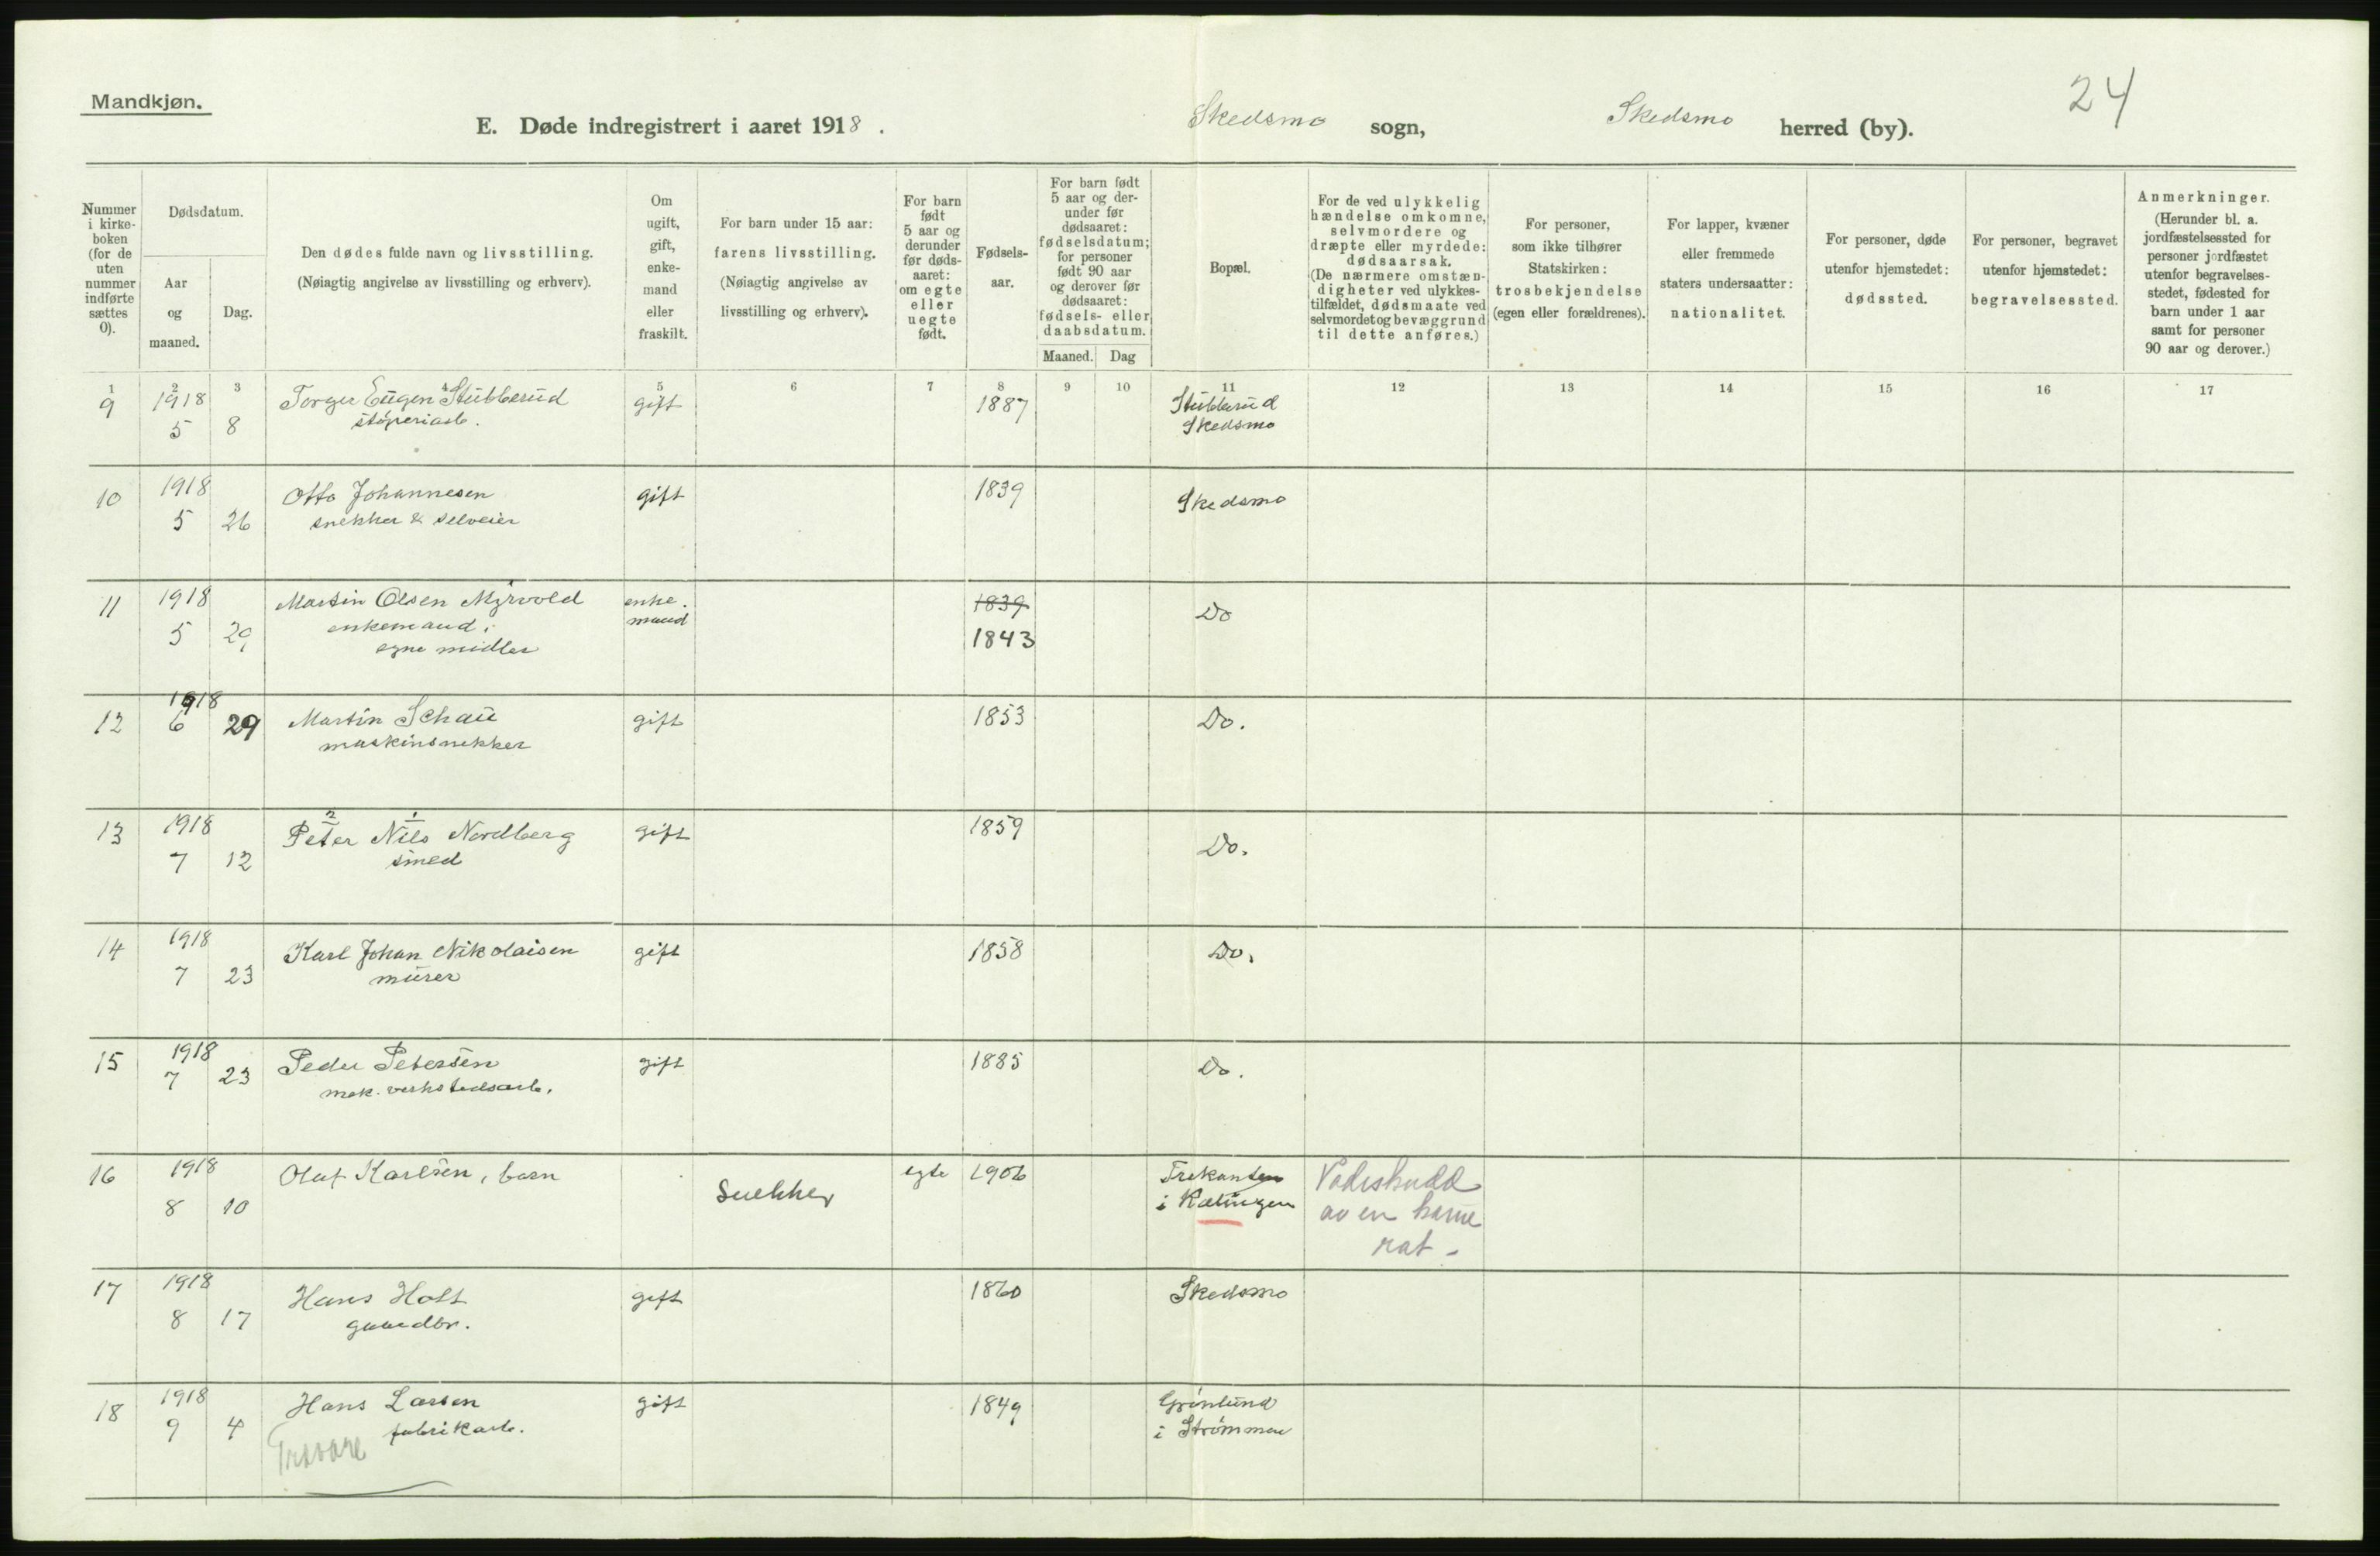 Mandkjøn.
24
E. Døde indregistrert i aaret 1918.
Skedsmo sogn, Skedsmo herred (by).
Nummer i kirke-boken (for de uten nummer indførte sættes 0).
Dødsdatum.
Aar og maaned.
Dag.
Den dødes fulde navn og livsstilling.
(Nøiagtig angivelse av livsstilling og erhverv).
Om ugift, gift, enke-mand eller fraskilt.
For barn under 15 aar:
farens livsstilling.
(Nøiagtig angivelse av livsstilling og erhverv).
For barn født 5 aar og derunder før døds-aaret: om egte eller uegte født.
Fødsels-aar.
For barn født 5 aar og der-under før dødsaaret: fødselsdatum; for personer født 90 aar og derover før dødsaaret: fødsels- eller daabsdatum.
Maaned. Dag
Bopæl.
For de ved ulykkelig hændelse omkomne, selvmordere og dræpte eller myrdede: dødsaarsak.
(De nærmere omstæn-digheter ved ulykkes-tilfældet, dødsmaate ved selvmordet og bevæggrund til dette anføres.)
For personer, som ikke tilhører Statskirken: trosbekjendelse (egen eller forældrenes).
For lapper, kvæner eller fremmede staters undersaatter: nationalitet.
For personer, døde utenfor hjemstedet: dødssted.
For personer, begravet utenfor hjemstedet: begravelsessted.
Anmerkninger.
(Herunder bl. a. jordfæstelsessted for personer jordfæstet utenfor begravelses-stedet, fødested for barn under 1 aar samt for personer 90 aar og derover.)
1 2 3 4 5 6 7 8 9 10 11 12 13 14 15 16 17
9 1918 Torger Eugen Stubberud gift 1887 Stubberud
5 8 støperiarb. Skedsmo
10 1918 Otto Johannesen gift 1839 Skedsmo
5 26 snekker & selveier
11 1918 Martin Olsen Myrvold enke- 1839 Do
5 29 enkemand; mand 1843
egne midler
12 1918 Martin Schau gift 1853 Do.
6 29 maskinsnekker
2 1
13 1918 Peter Nils Nordberg gift 1859 Do.
7 12 smed
14 1918 Karl Johan Nikolaisen gift 1858 Do.
7 23 murer
15 1918 Peder Petersen gift 1885 Do.
7 23 mek. verkstedsarb.
16 1918 Olaf Karlsen, barn Snekker egte 1906 Trekanten Vadeskudd
8 10 i Kælingen av en kame
rat.
17 1918 Hans Holt gift 1860 Skedsmo
8 17 gaardbr.
18 1918 Hans Larsen gift 1849 Grönlund
9 4 fabrikarb. i Strömmen
Trævare